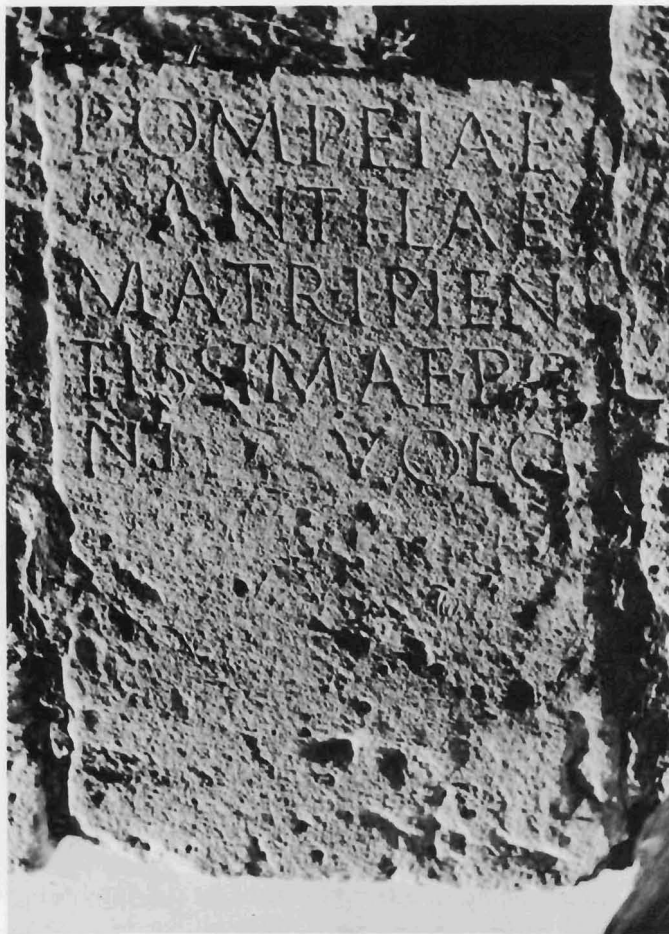 POMPEIAE
ANTILAE
MATRI PIEN
TISSIMAE
VOLC